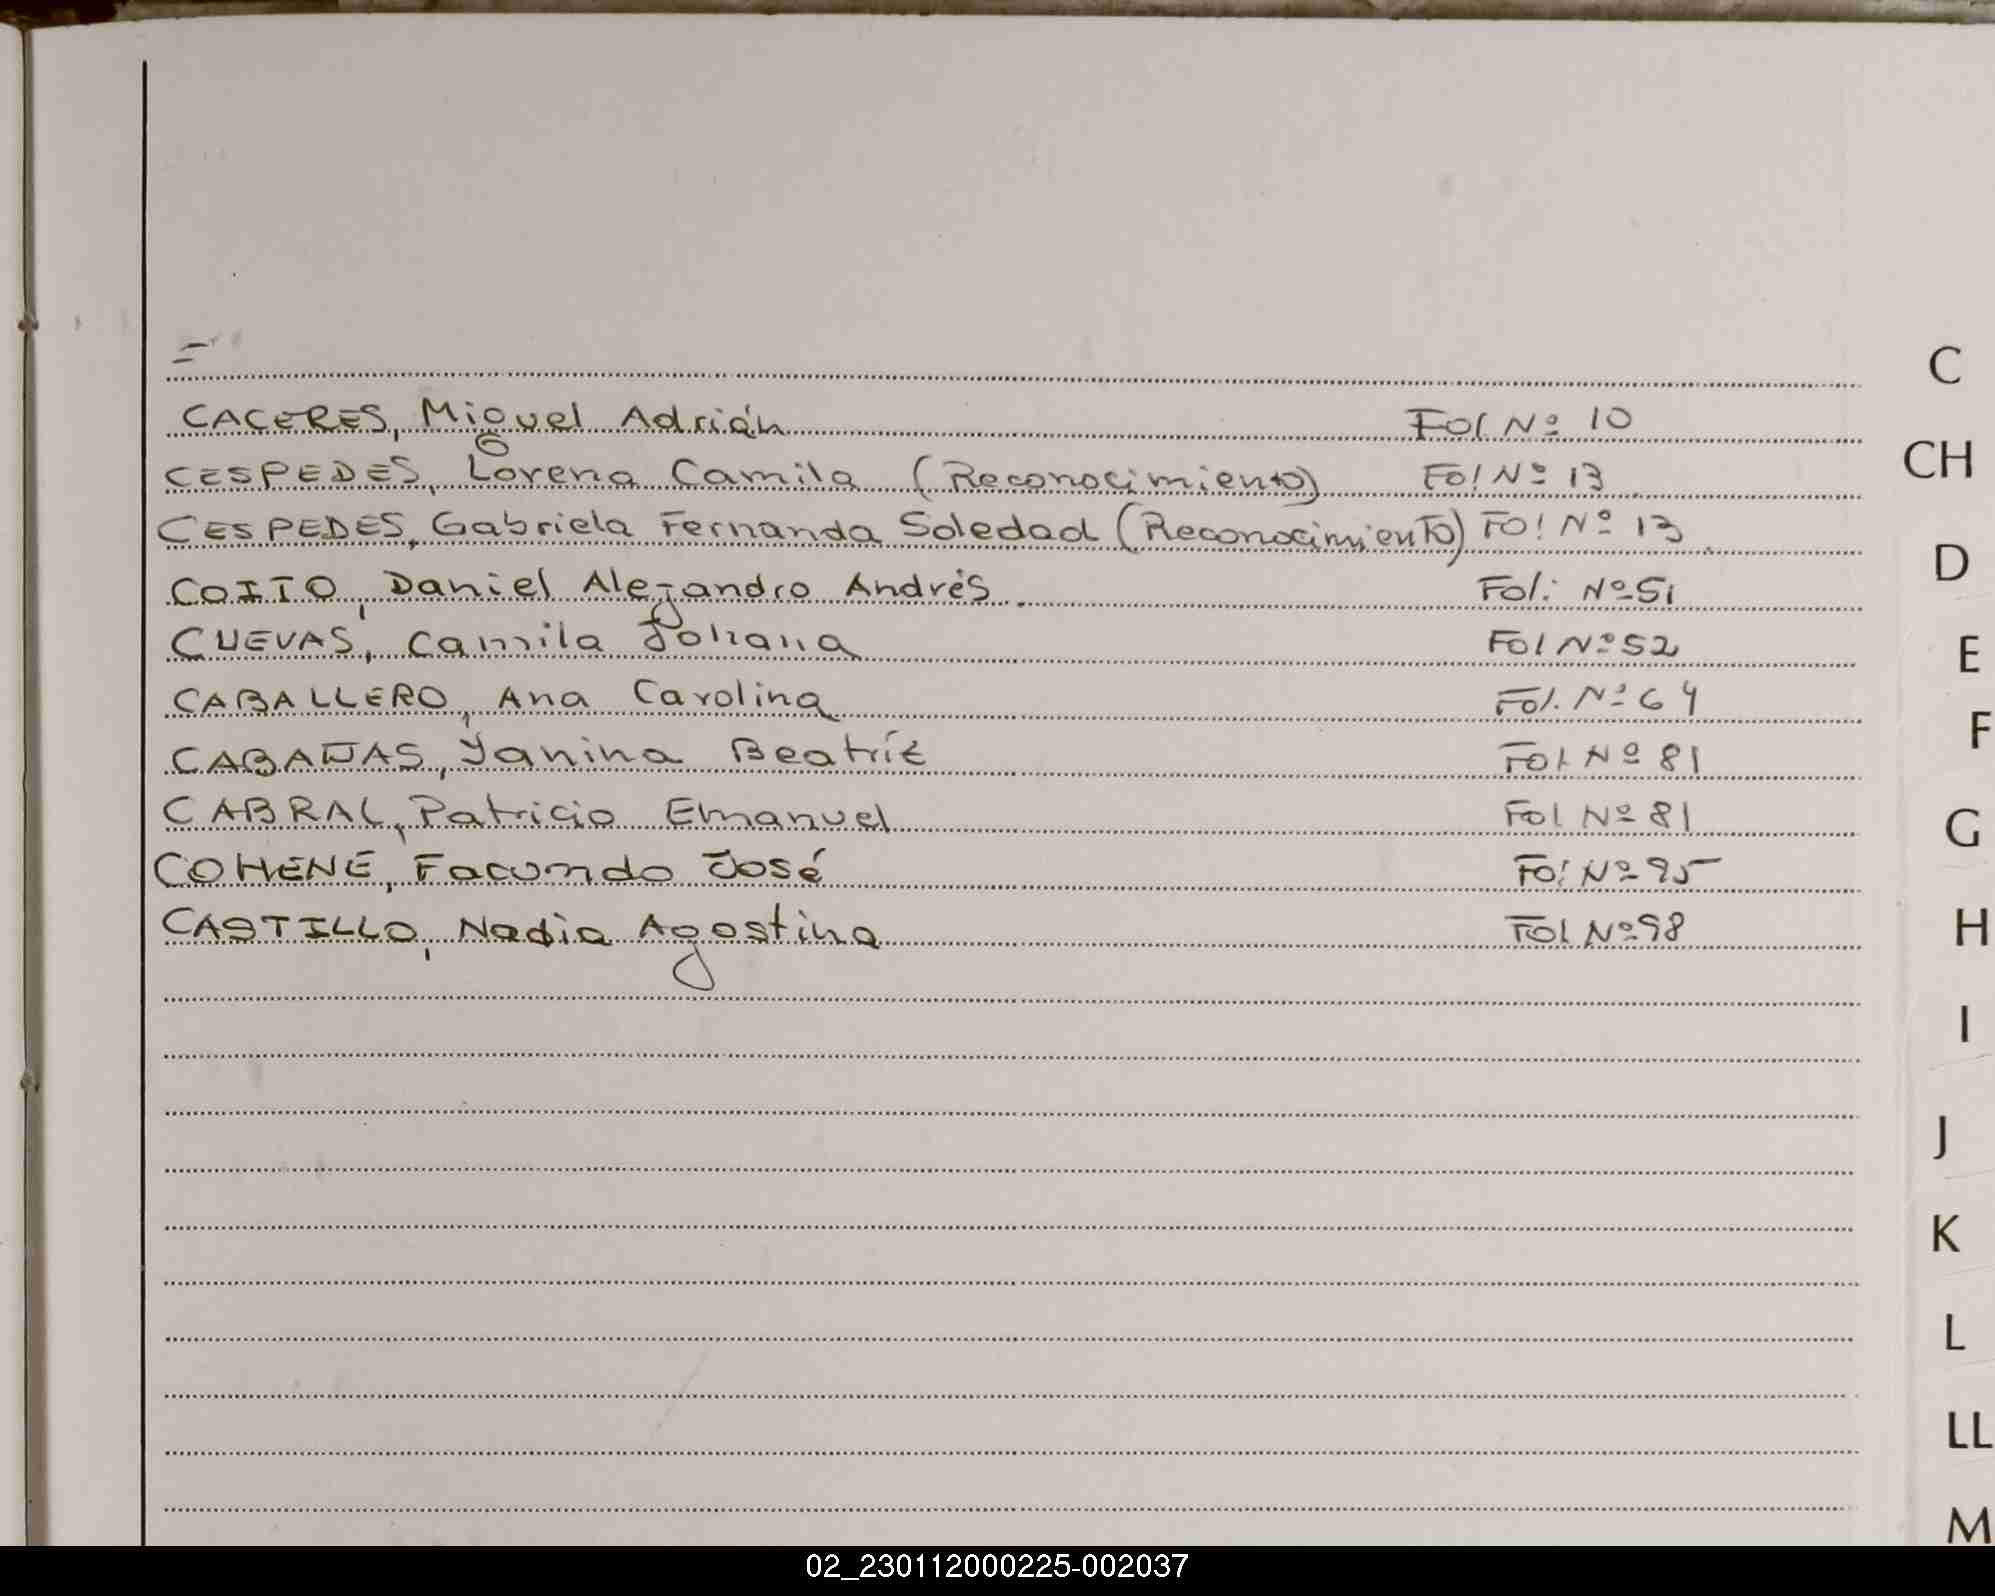 CACERES, Miguel Adrián Fol Nº 10
CESPEDES, Lorena Camila (Reconocimiento) Fol Nº 13
CESPEDES, Gabriela Fernanda Soledad (Reconocimiento) Fol Nº 13
COITO, Daniel Alejandro Andrés. Fol: Nº 51
CUEVAS, Camila Johana Fol Nº 52
CABALLERO, Ana Carolina Fol. Nº 64
CABAÑAS, Yanina Beatríz Fol Nº 81
CABRAL, Patricio Emanuel Fol Nº 81
COHENE, Facundo José Fol Nº 95
CASTILLO, Nadia Agostina Fol Nº 98
C
CH
D
E
F
G
H
I
J
K
L
LL
M
02_230112000225-002037